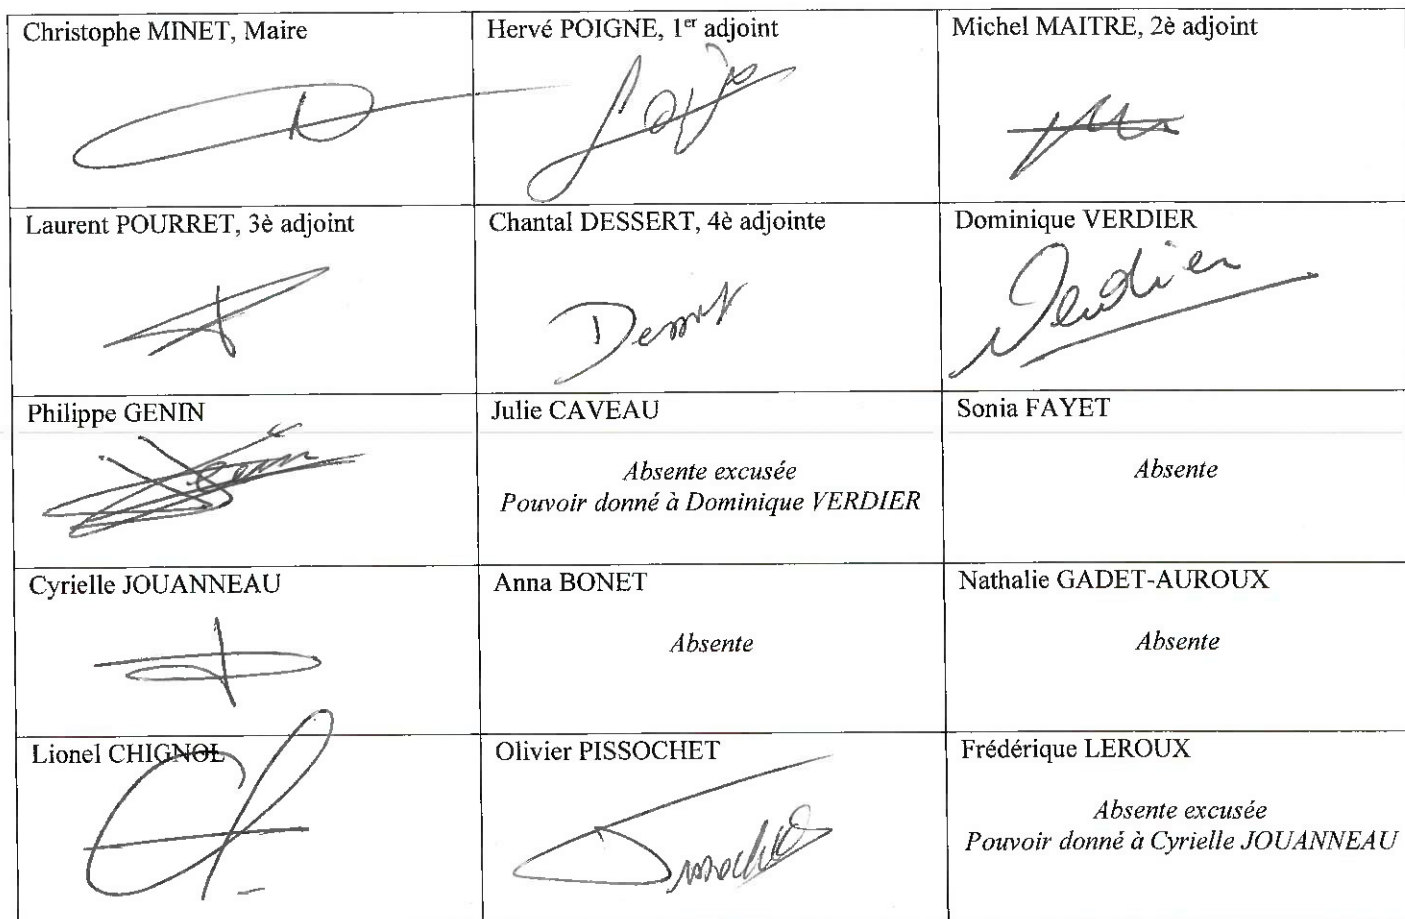 Christophe MINET, Maire
Hervé POIGNE, 1er adjoint
Michel MAITRE, 2è adjoint
Laurent POURRET, 3è adjoint
Chantal DESSERT, 4è adjointe
Dominique VERDIER
Verdier
Philippe GENIN
Julie CAVEAU
Absente excusée
Pouvoir donné à Dominique VERDIER
Sonia FAYET
Absente
Cyrielle JOUANNEAU
Anna BONET
Absente
Nathalie GADET-AUROUX
Absente
Lionel CHIGNOL
Olivier PISSOCHET
Frédérique LEROUX
Absente excusée
Pouvoir donné à Cyrielle JOUANNEAU